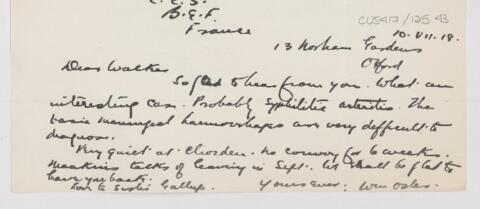 C.C.S.
B.E.F.
France
CUS417/125.43
10.VII.18.
13 Norham Gardens
Oxford
Dear Walker
So glad to hear from you. What an
interesting case. Probably syphilitic arteritis. The
basic meningeal haemorrhages are very difficult to
diagnose.
Very quiet at Cliveden. No convoy for 6 weeks.
Meakins talks of leaving in Sept. We shall be glad to
have you back.
Love to Sister Gallup.
Yours ever: Wm Osler.